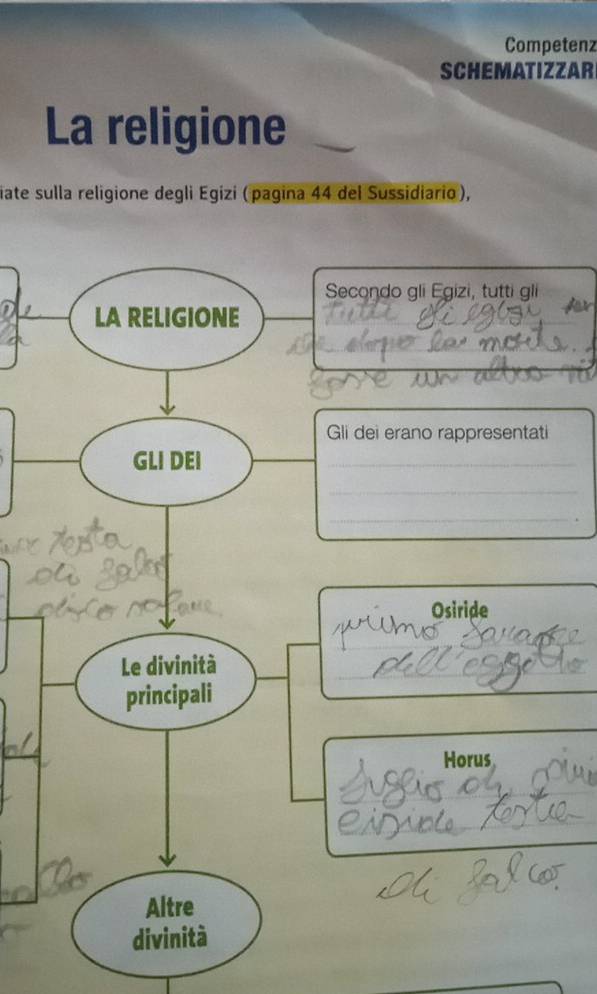 Competenz
SCHEMATIZZAR
La religione
iate sulla religione degli Egizi (pagina 44 del Sussidiario),
LA RELIGIONE
Secondo gli Egizi, tutti gli
tutti gli egizi
che dopo la morte.
un altra vit
GLI DEI
Gli dei erano rappresentati
testa
di falco
disco solare
Le divinità
principali
Osiride
primo faraone
dell'eggitto
Horus
figlio di
eiside testa
di falco.
Altre
divinità